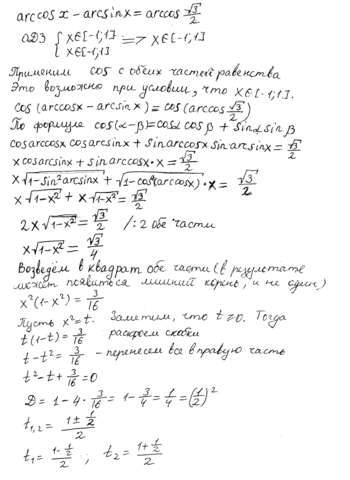 arccos x - arcsin x = arccos √3/2
ОДЗ { x∈[-1;1] x∈[-1;1] => x∈[-1,1]
Применим cos с обеих частей равенства
Это возможно при условии, что x∈[-1,1].
cos(arccosx - arcsinx) = cos(arccos √3/2)
По формуле cos(α-β)=cosα cosβ + sinα sinβ
cosarccosx cosarcsinx + sinarccosx sinarcsinx = √3/2
x cosarcsinx + sinarccosx·x = √3/2
x√(1-sin²arcsinx) + √(1-cos²(arccosx))·x = √3/2
x√(1-x²) + x√(1-x²) = √3/2
2x√(1-x²) = √3/2 /:2 обе части
x√(1-x²) = √3/4
Возведём в квадрат обе части (в результате
может появиться лишний корень, и не один)
x²(1-x²) = 3/16
Пусть x²=t. Заметим, что t≥0. Тогда
t(1-t) = 3/16 раскроем скобки
t-t² = 3/16 - перенесем все в правую часть
t²-t+3/16=0
D = 1-4·3/16 = 1-3/4 = 1/4 = (1/2)²
t₁,₂ = (1±1/2)/2
t₁ = (1-1/2)/2 ; t₂ = (1+1/2)/2